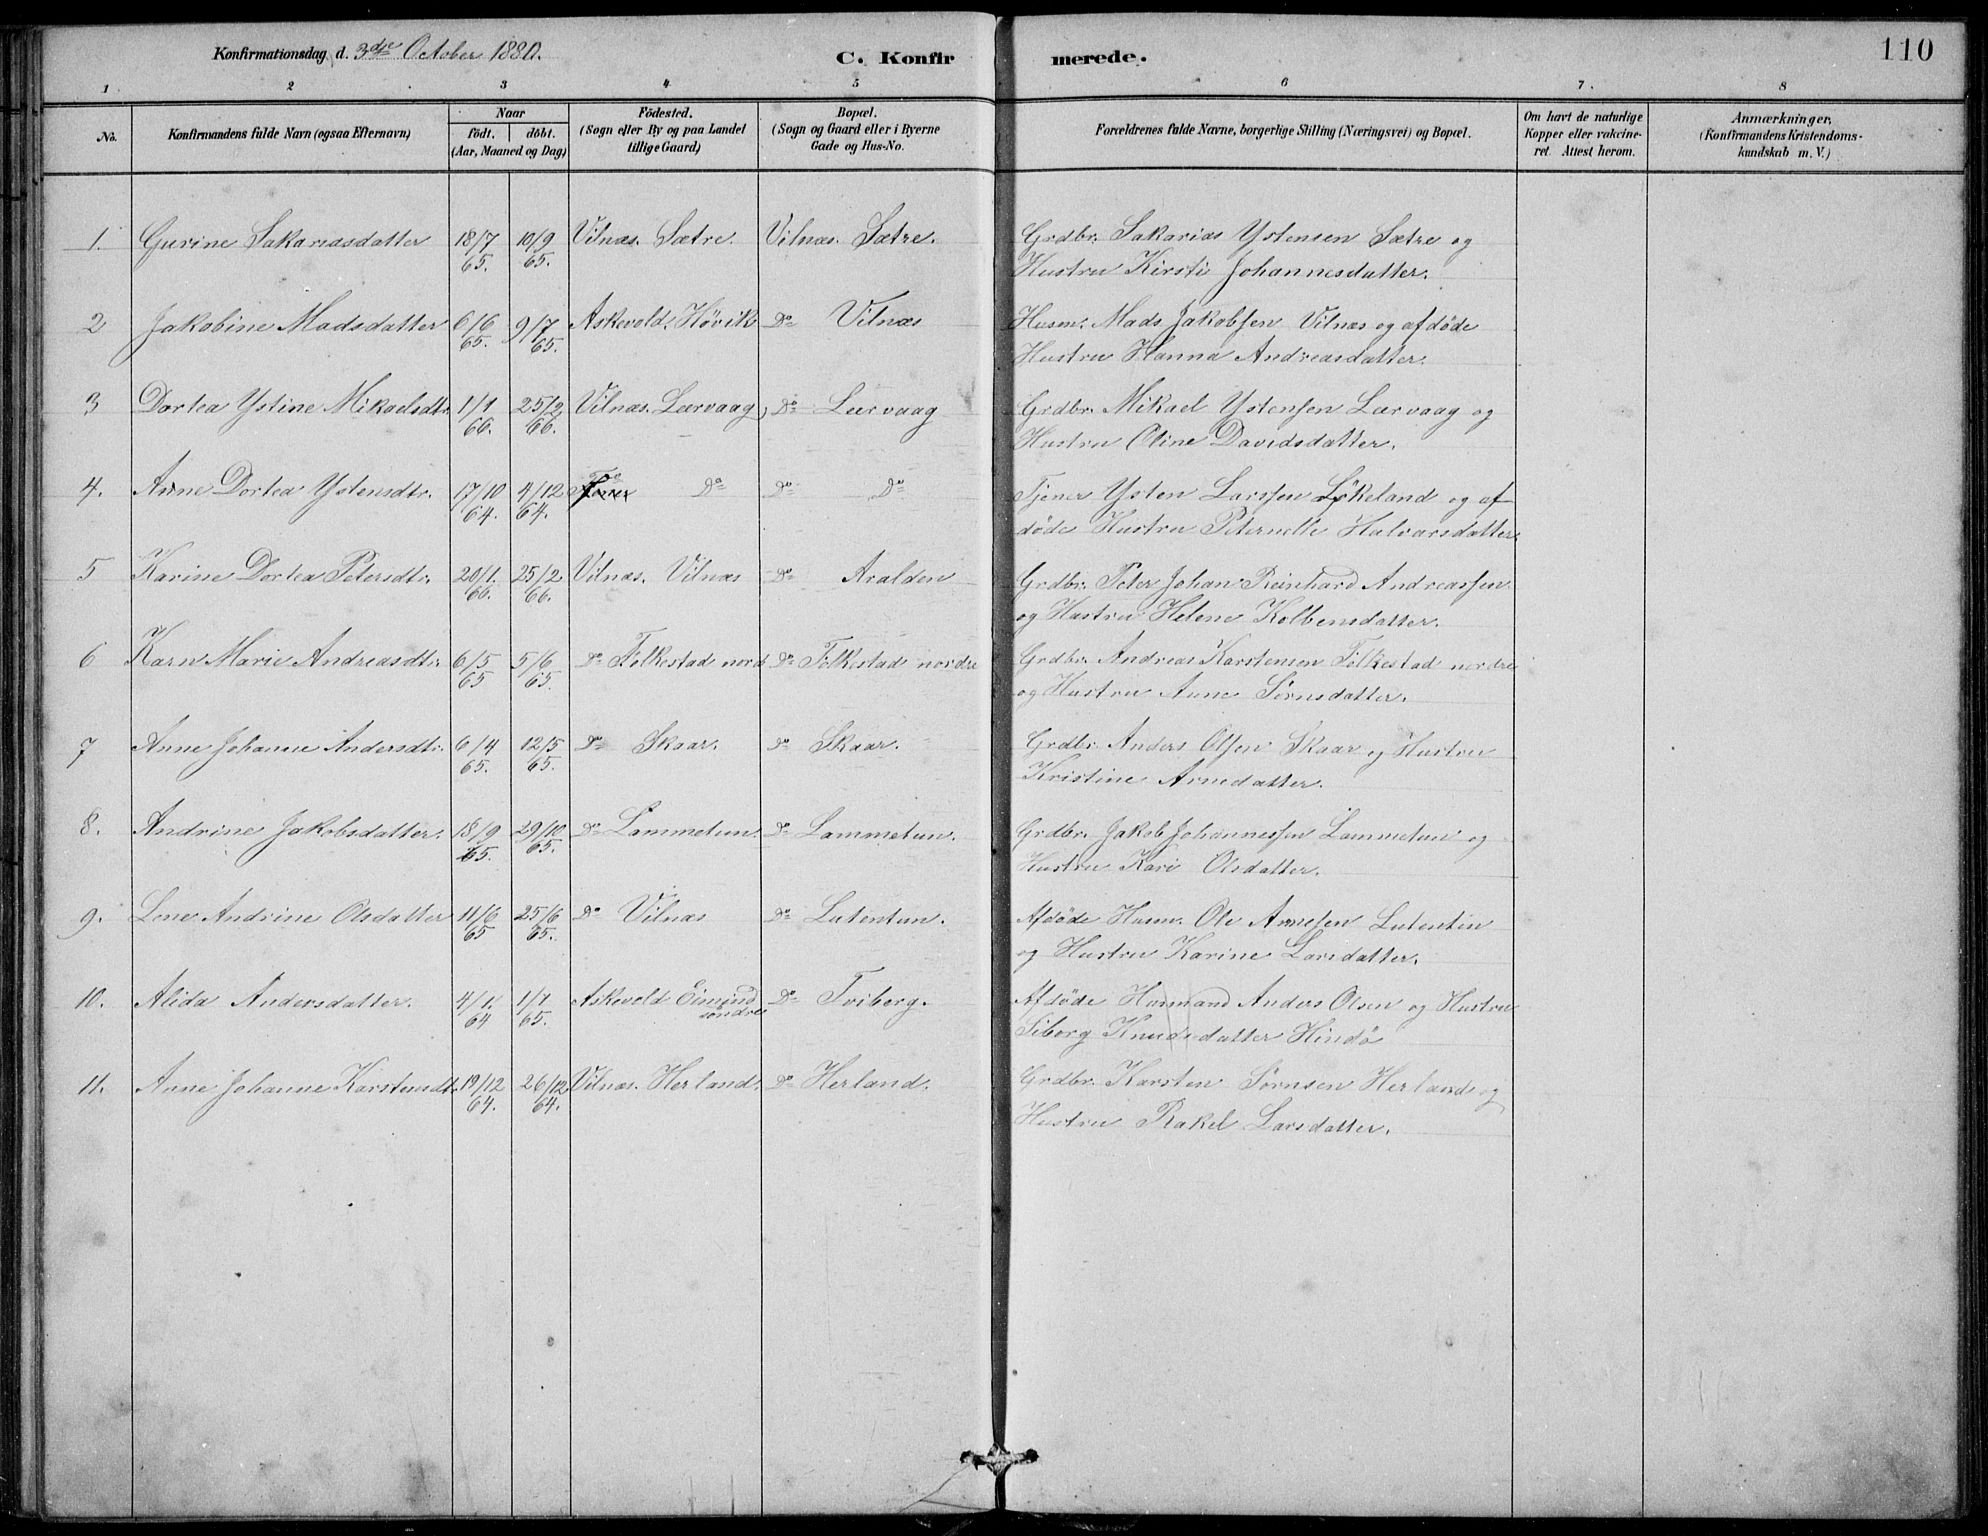 Konfirmationsdag d. 3die October 1880.
C. Konfirmerede.
110
1 2 3 4 5 6 7. 8
No.
Konfirmandens fulde Navn (ogsaa Efternavn)
Naar
født. døbt.
(Aar, Maaned og Dag)
Fødested.
(Sogn eller By og paa Landet
tillige Gaard)
Bopæl.
(Sogn og Gaard eller i Byerne
Gade og Hus-No.
Forældrenes fulde Navne, borgerlige Stilling (Næringsvei) og Bopæl.
Om havt de naturlige
Kopper eller vakcine-
ret. Attest herom.
Anmærkninger,
(Konfirmandens Kristendoms-
kundskab m. V.)
1. Gurine Sakariasdatter 18/7 65. 10/9 65. Vilnæs. Sætre. Vilnæs. Sætre. Grdbr. Sakarias Ystensen Sætre og
Hustru Kirsti Johannesdatter.
2 Jakobine Madsdatter 6/6 65. 9/7 65. Askevold. Hövik Do Vilnæs Husm. Mads Jakobsen Vilnæs og afdöde
Hustru Hanna Andreasdatter.
3 Dortea Ystine Mikaelsdtr. 1/1 66. 25/2 66. Vilnæs. Lærvaag Do Lærvaag Grdbr. Mikael Ystensen Lærvaag og
Hustru Oline Davidsdatter.
4. Anne Dortea Ystensdtr. 17/10 64. 4/12 64. Do Do Do Do Tjener Ysten Larssen Lökeland og af
döde Hustru Peternelle Halvarsdatter.
5 Karine Dortea Petersdtr. 20/1. 66. 25/2 66. Vilnæs. Vilnæs Do Aralden Grdbr. Peter Johan Reinhard Andreassen
og Hustru Helene Kolbensdatter.
6 Karn Marie Andreasdtr. 6/5 65 5/6 65. Do Folkestad nord Do Folkestad nordre Grdbr. Andreas Karstensen Folkestad nordre
og Hustru Anne Sörnsdatter.
7 Anne Johanne Andersdtr. 6/4 65. 12/5 65. Do Skaar. Do Skaar. Grdbr. Anders Olsen Skaar og Hustru
Kristine Arnedatter.
8. Andrine Jakobsdatter. 18/9 65. 29/10 65. Do Lammetun. Do Lammetun. Grdbr. Jakob Johannessen Lammetun og
Hustru Kari Olsdatter.
9. Lene Andrine Olsdatter 11/6 65 25/6 65. Do Vilnæs Do Lutentun. Afdöde Husm. Ole Arnesen Lutentin
og Hustru Karine Larsdatter.
10. Alida Andersdatter. 4/1. 64 1/1 65. Askevold Eimind söndre Do Tviberg. Afdöde Husmand Anders Olsen og Hustru
Siborg Knudsdatter Hindö
11. Anne Johanne Karstensdt. 19/12 64. 26/12 64. Vilnæs. Herland. Do Herland. Grdbr. Karsten Sörnsen Herland og
Hustru Rakel Larsdatter.